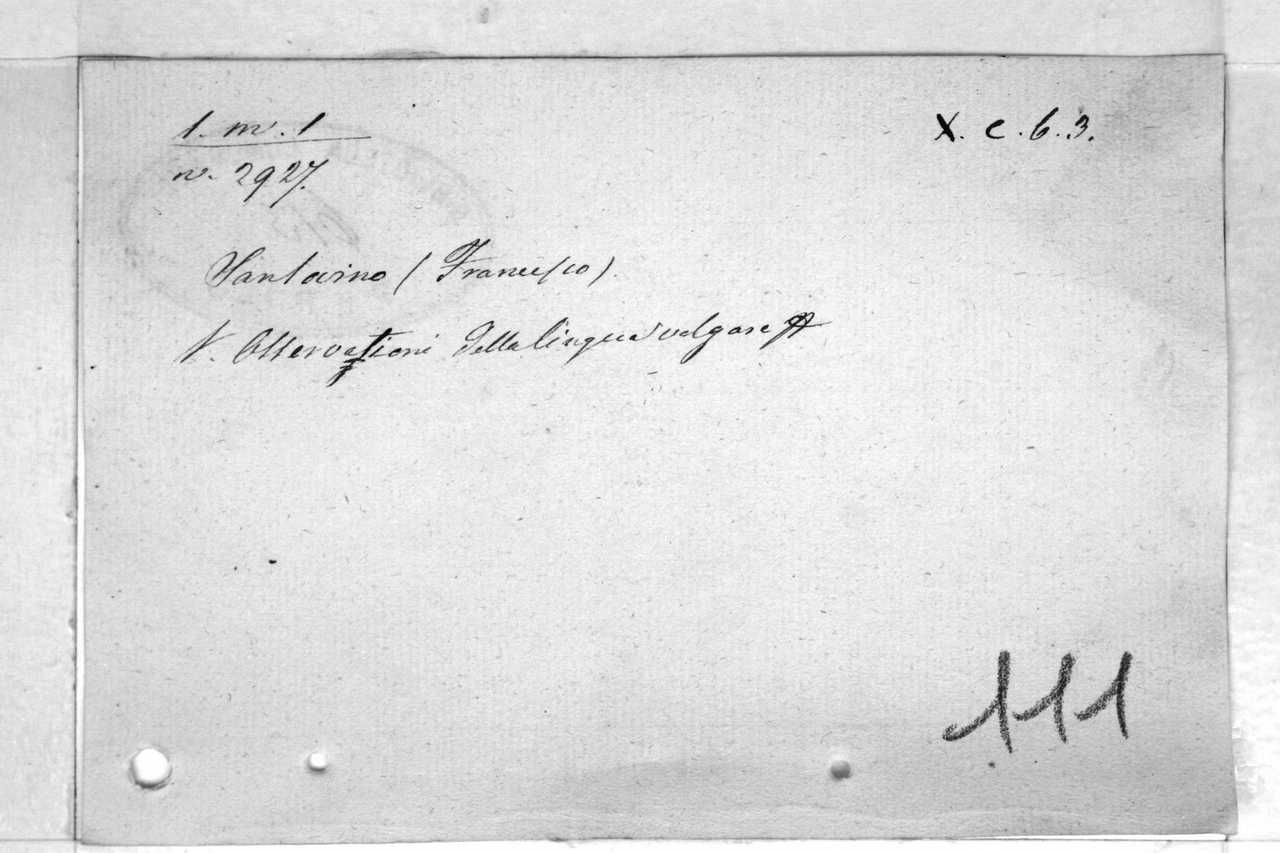 1. m. 1
X. c. 6. 3.
n. 2927.
Santovino (Francesco).
V. Osservationi della lingua volgare
111